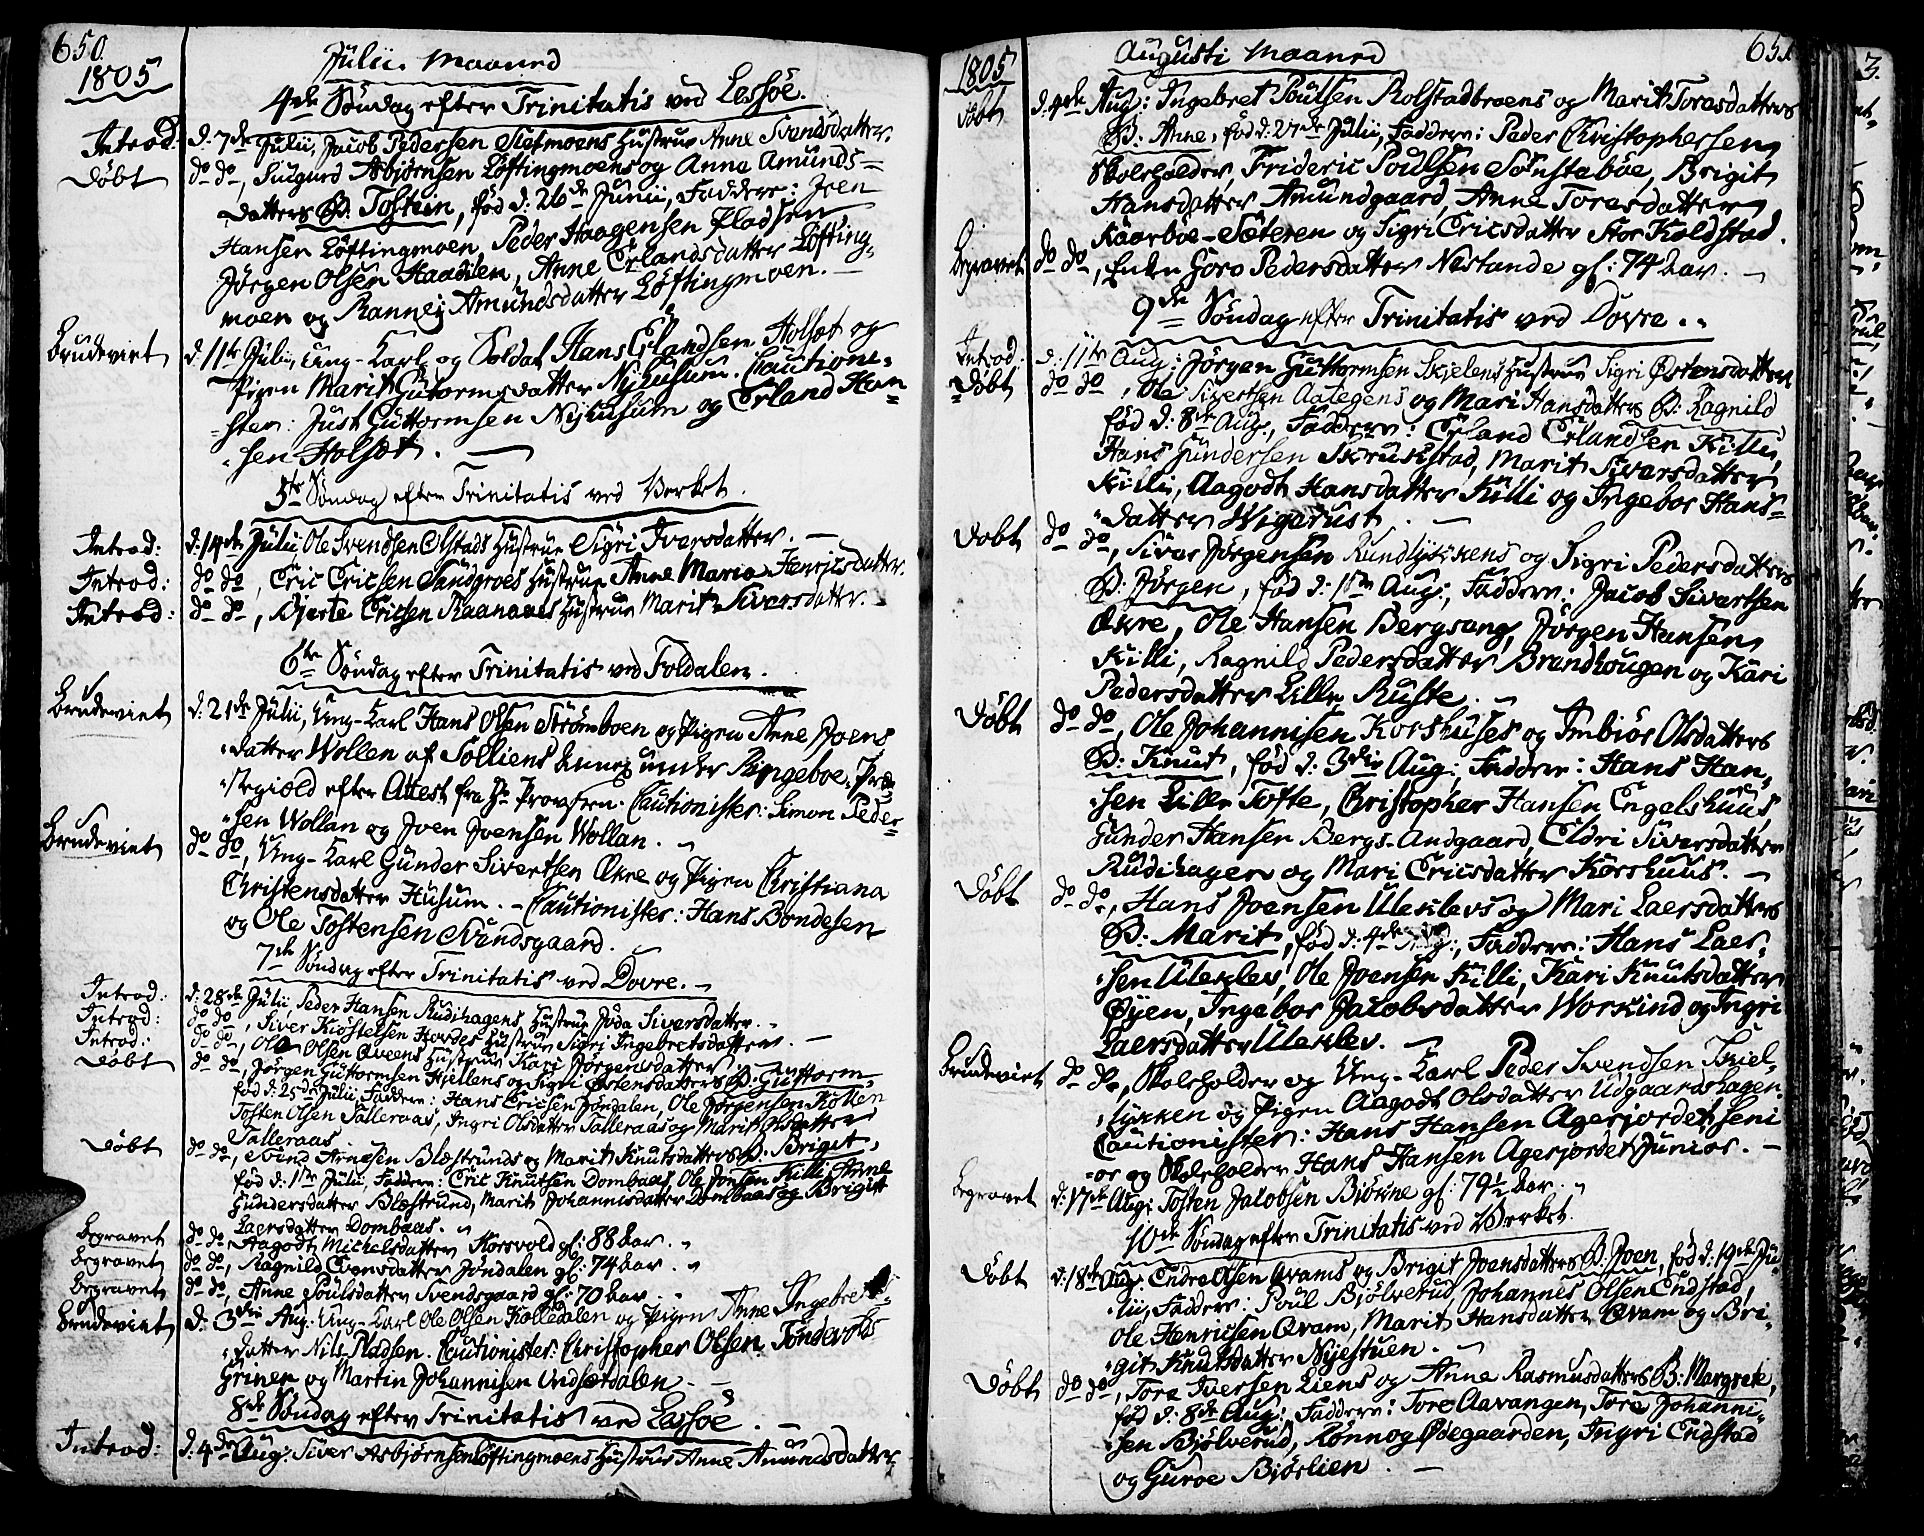 650.
1805
Julii Maaned
4de Søndag efter Trinitatis ved Lessøe.
Introd: d. 7de Julii, Jacob Pedersen Sletmoens Hustrue Anne Svendsdatter.
Døbt do do, Suigurd Asbjørnsen Løftingmoens og Anna Amunds=
datters B: Tostein, fød d: 26de Junii, Faddere: Joen
Hansen Løftingmoen, Peder Haagensen Pladsen
Jørgen Olsen Haadilen, Anne Erlandsdatter Løfting,
moen og Rannei Amundsdatter Løftingmoen. —
Brudeviet d. 11te Julii, Ung-Karl og Soldat Hans Erlandsen Holset og
Pigen Marit Gutormsdatter Nyhusum. Cautioni=
=ster: Just Guttormsen Nyhusum og Erland Han=
sen Holset. —
5te Søndag efter Trinitatis ved Verket.
Introd: d. 14de Julii Ole Svendsen Olstads Hustrue Sigri Iversdatter. —
Introd: do do, Eric Ericsen Sandgroes Hustrue Anne Maria Henricsdatter.
Introd: do do, Bjerte Ericsen Raanaaes Hustrue Marit Siversdatter.
6te Søndag efter Trinitatis ved Foldalen.
Brudeviet d. 21de Julii, Ung-Karl Hans Olsen Strømboen og Pigen Anne Joens
datter Wollen af Solliens Annex under Ringeboe Præ
stegield efter Attest fra Hr Provsten. Cautionister: Simon Peder=
sen Wollan og Joen Joensen Wollan.
Brudeviet do do, Ung-Karl Gunder Sivertsen Økre og Pigen Christiana
Christensdatter Husum. - Cautionister: Hans Bondesen
og Ole Tostensen Svendsgaard.
7de Søndag efter Trinitatis ved Dovre.
Introd: d. 28de Julii, Peder Hansen Rudihagens Hustrue Joda Siversdatter.
Introd: do do, Siver Kiøstelsen Hordes Hustrue Sigri Ingebretsdatter.
Introd: do do, Ole Olsen Qveens Hustrue Kari Jørgensdatter. —
Døbt do do, Jørgen Guttormsen Hjellens og Sigri Østensdatters B: Guttorm,
fød d: 25de Julii, Faddere: Hans Ericsen Jøndalen, Ole Jørgensen Kollen
Tosten Olsen Talleraas, Ingri Olsdatter Talleraas og Marit Olsdatter
Talleraas.
Døbt do do, Evind Arnesen Blæstrunds og Marit Knutsdatters B: Brigit,
fød d: 11te Julii, Faddere: Eric Knutsen Dombaas, Ole Jonsen Killi, Anne
Gundersdatter Blæstrund, Marit Johannisdatter Dombaas og Brigit
Laersdatter Dombaas.
Begravet do do, Aagodt Michelsdatter Korsvold gl: 88 aar.
Begravet do do, Ragnild Evensdatter Jøndalen gl: 74 aar.
Begravet do do, Anne Poulsdatter Svendsgaard gl: 70 aar.
Brudeviet d. 3die Aug. Ung-Karl Ole Olsen Kolledalen og Pigen Anne Ingebrets
datter Nils Pladsen. Cautionister: Christopher Olsen Tondevolds
Grinen og Martin Johannisen Undsetdalen. —
8de Søndag efter Trinitatis ved Lessøe.
Introd: d. 4de Aug: Siver Asbjørnsen Løftingmoens Hustrue Anne Amundsdatter
651.
1805
Augusti Maaned
Døbt d. 4de Aug: Ingebret Poulsen Rolstadbroens og Marit Toresdatters
B: Anne, fød d. 27de Julii, Faddere: Peder Christophersen
Skoleholder, Frideric Poulsen Sønstebøe, Brigit
Hansdatter Amundgaard, Anne Toresdatter
Kaarboe-Sæteren og Sigri Ericsdatter Stor Koldstad.
Begravet do do, Enken Goro Pedersdatter Nestande gl: 74 aar. —
9de Søndag efter Trinitatis ved Dovre.
Introd. d. 11te Aug: Jørgen Guttormsen Skjelens Hustrue Sigri Østensdatter
Døbt do do, Ole Sivertsen Aalegens og Mari Hansdatters B: Ragnild
fød d. 8de Aug:, Faddere: Erland Erlandsen Killi,
Hans Gundersen Skrukstad, Marit Siversdatter
Killi, Aagodt Hansdatter Killi og Ingebor Hans=
datter Wigerust. —
Døbt do do, Siver Jørgensen Rundlykkens og Sigri Pedersdatters
B: Jørgen, fød d. 1ste Aug:, Faddere: Jacob Sivertsen
Økre, Ole Hansen Bergseng, Jørgen Hansen
Killi, Ragnild Pedersdatter Brandhougen og Kari
Pedersdatter Lille Ruste. —
Døbt do do, Ole Johannisen Korshuses og Imbiør Olsdatters
B: Knut, fød d: 3die Aug:, Faddere: Hans Han,
sen Lille Tofte, Christopher Hansen Engelshuus,
Gunder Hansen Bergs-Andgaard, Eldri Siversdatter
Rudihagen og Mari Ericsdatter Korshuus. —
Døbt do do, Hans Joensen Uleklevs og Mari Laersdatters
B: Marit, fød d. 4de Aug:, Faddere: Hans Laer,
sen Uleklev, Ole Joensen Killi, Kari Knutsdatter
Øyen, Ingebor Jacobsdatter Workind og Ingri
Laersdatter Uleklev. —
Brudeviet do do, Skoleholder og Ung-Karl Peder Svendsen Skiel,
lykken og Pigen Aagodt Olsdatter Udgaardshagen.
Cautionister: Hans Hansen Agerjordet Seni
or og Skoleholder Hans Hansen Agerjordet Junior. —
Begravet d. 17de Aug: Tosten Jacobsen Biørne gl: 79½ aar.
10de Søndag efter Trinitatis ved Verket.
Døbt d. 18de Aug: Endre Olsen Qvams og Brigit Joensdatters B: Joen, fød d. 19de Ju,
lii, Faddere: Poul Bjølverud, Johannes Olsen Endstad,
Ole Henricsen Qvam, Marit Hansdatter Qvam og Bri,
git Knutsdatter Nyestuen. —
Døbt do do, Tore Iversen Liens og Anne Rasmusdatters B: Margrete,
fød d: 8de Aug:, Faddere: Tore Aavangen, Tore Johanni,
sen Bjølverud, Rønnog Ødegaarden, Ingri Endstad
og Guroe Bjørlien. —